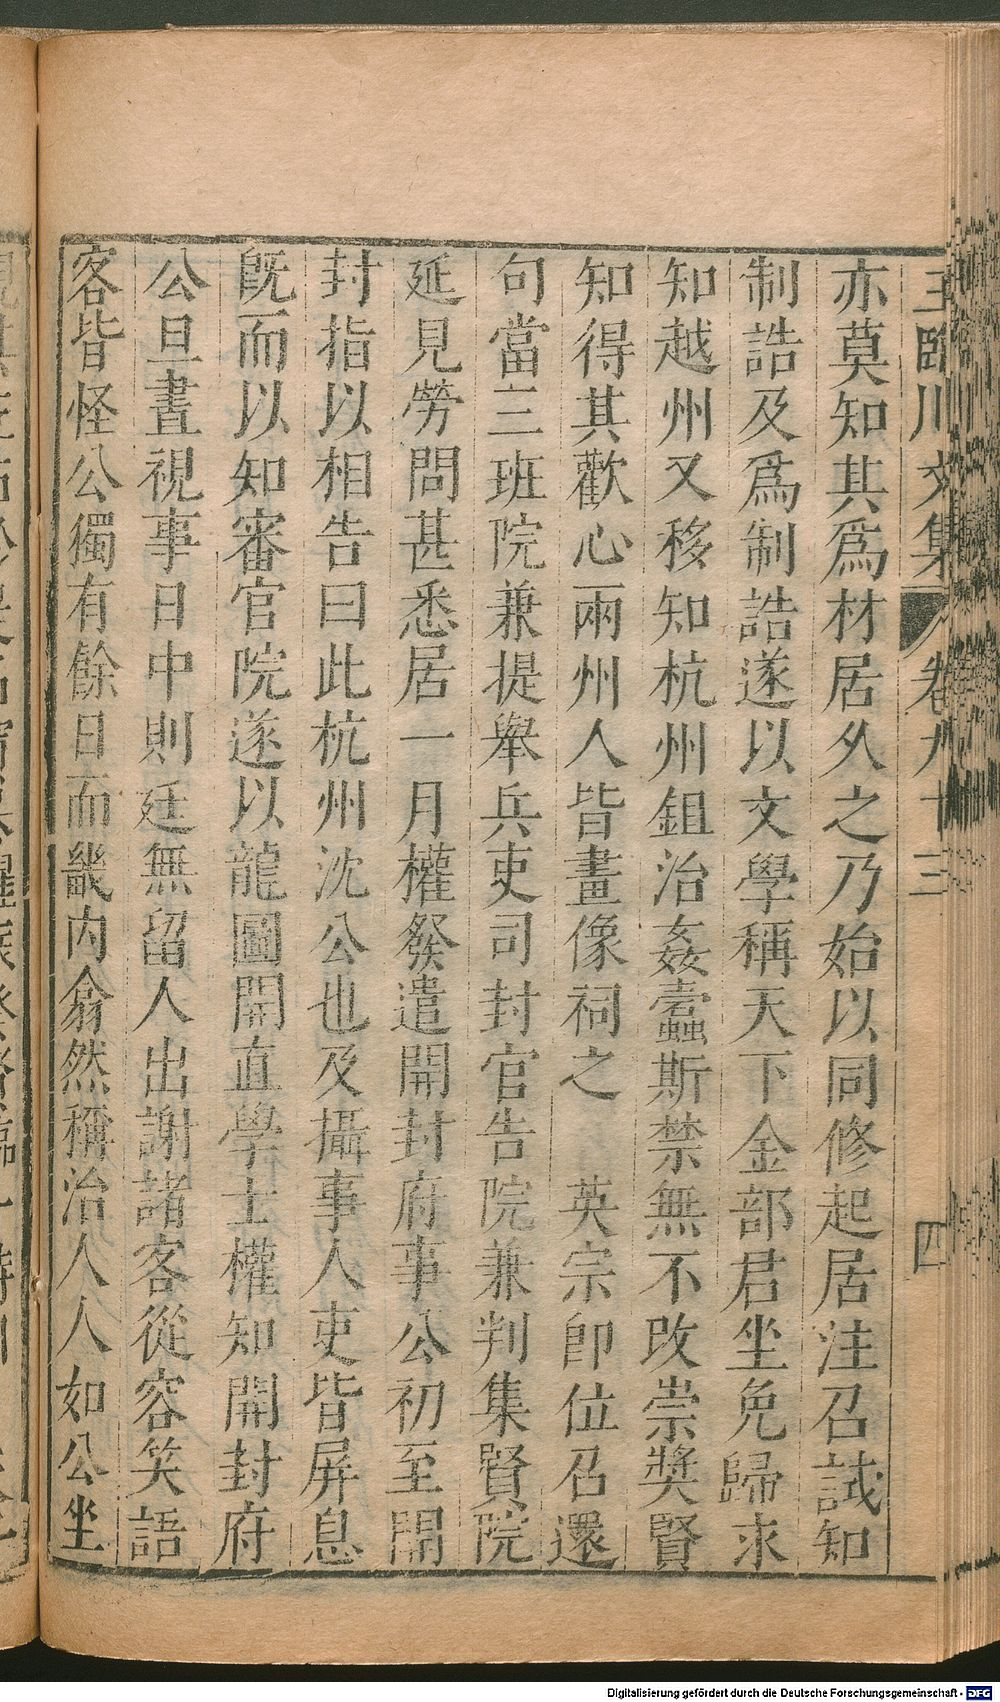 王臨川文集 卷九十三 四
亦莫知其爲材居久之乃始以同修起居注召試知
制誥及爲制誥遂以文學稱天下金部君坐免歸求
知越州又移知杭州鉏治姦蠹斯禁無不改崇奬賢
知得其歡心兩州人皆畫像祠之 英宗即位召還
句當三班院兼提舉兵吏司封官告院兼判集賢院
延見勞問甚悉居一月權發遣開封府事公初至開
封指以相告曰此杭州沈公也及攝事人吏皆屏息
既而以知審官院遂以龍圖閣直學士權知開封府
公旦晝視事日中則廷無留人出謝諸客從容笑語
客皆怪公獨有餘日而畿內翕然稱治人人如公坐
Digitalisierung gefördert durch die Deutsche Forschungsgemeinschaft - DFG